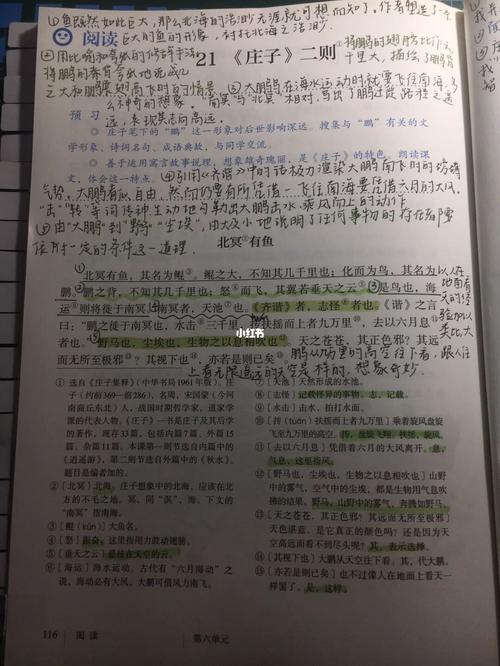 ①鱼既然如此巨大，那么北海的浩渺无涯就可想而知了，作者塑造了一个
阅读 巨大的鱼的形象，衬托北海之浩渺。
21 《庄子》二则
②用比喻和夸张的修辞手法
③将鹏的翅膀比作
将鹏的脊背夸张地说成
千里大，描绘了鹏脊背
之大和鹏展翅南飞时的
②大鹏在海水运动时就要飞往南海，
多么神奇的想象。"南冥"与"北冥"相对，写出了鹏迁徙路程之遥
远，表现其志向高远。
预 习
◎ 庄子笔下的“鹏”这一形象对后世影响深远。搜集与“鹏”有关的文
学形象、诗词名句、成语典故，与同学交流。
◎ 善于运用寓言故事说理，想象雄奇瑰丽，是《庄子》的特色。朗读课
文，体会这一特点。
④引用《齐谐》中的话极力渲染大鹏南飞时的磅礴
气势，大鹏看似自由，然而仍要有所凭借——飞往南海要凭借六月的大风，
"击""转"等词传神生动地勾勒出大鹏击水、乘风而上的动作
⑤由"大鹏"到"野马""尘埃"，由大及小地说明了任何事物的存在都需
依附一定的条件这一道理
北冥②有鱼
北冥有鱼，其名为鲲③。鲲之大，不知其几千里也；化而为鸟，其名为
鹏。鹏之背，不知其几千里也；怒④而飞，其翼若垂天之云⑤。是鸟也，海
运⑥则将徙于南冥。南冥者，天池⑦也。《齐谐》者，志怪⑧者也。《谐》之言
曰：“鹏之徙于南冥也，水击⑨三千里，抟扶摇而上者九万里⑩，去以六月息
者也⑪。”野马也，尘埃也，生物之以息相吹也⑫。天之苍苍，其正色邪？其远
而无所至极邪⑬？其视下也⑭，亦若是则已矣⑮。
以人在
地面看
天的经
验加以
类比大
鹏从
的高空往下看，跟人往
上看无限遥远的天空是一样的，想象奇妙。
小红书
① 选自《庄子集释》（中华书局1961年版）。庄
子（约前369—前286），名周，宋国蒙（今河
南商丘东北）人，战国时期哲学家，道家学
派的代表人物。《庄子》一书是庄子及其后学
的著作，现存33篇，包括内篇7篇、外篇15
篇、杂篇11篇。本课第一则节选自内篇中的
《逍遥游》，第二则节选自外篇中的《秋水》。
题目是编者加的。
② 〔北冥〕北海。庄子想象中的北海，应该在北
方的不毛之地。冥，同“溟”，海。下文的
“南冥”指南海。
③ 〔鲲（kūn）〕大鱼名。
④ 〔怒〕振奋，这里指用力鼓动翅膀。
⑤ 〔垂天之云〕悬挂在天空的云。
⑥ 〔海运〕海水运动。古代有“六月海动”之
说，海动必有大风，大鹏可借风力南飞。
⑦ 〔天池〕天然形成的水池。
⑧ 〔志怪〕记载怪异的事物。志，记载。
⑨ 〔水击〕击水，拍打水面。
⑩ 〔抟（tuán）扶摇而上者九万里〕乘着旋风盘旋
飞至九万里的高空。抟，盘旋飞翔。扶摇，旋风。
⑪ 〔去以六月息者也〕凭借着六月的大风离开。息，
气息，这里指风。
⑫ 〔野马也，尘埃也，生物之以息相吹也〕山野
中的雾气，空气中的尘埃，都是生物用气息吹
拂的结果。野马，山野中的雾气，奔腾如野马。
⑬ 〔天之苍苍，其正色邪？其远而无所至极邪〕天
色湛蓝，是它真正的颜色吗？还是因为天
空高远而看不到尽头呢？其，表示选择。
⑭ 〔其视下也〕大鹏从天空往下看。其，代大鹏。
⑮ 〔亦若是则已矣〕也不过像人在地面上看天一
样罢了。是，这样。
116 阅 读 第六单元